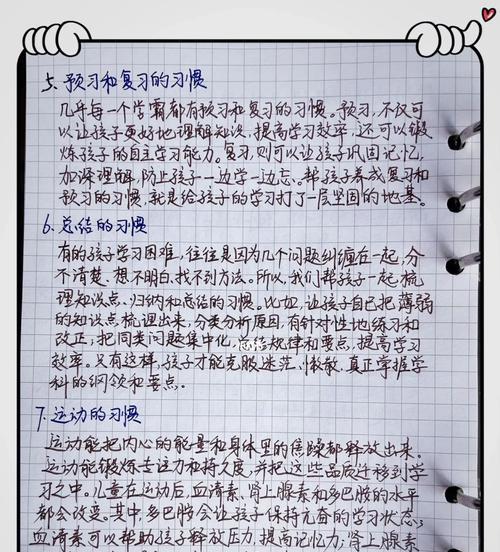 5、预习和复习的习惯
几乎每一个学霸都有预习和复习的习惯。预习,不仅可
以让孩子更好地理解知识,提高学习效率,还可以锻
炼孩子的自主学习能力。复习,则可以让孩子巩固记忆,
加深理解,防止孩子一边学一边忘。帮孩子养成复习和
预习的习惯,就是给孩子的学习打了一层坚固的地基。
6、总结的习惯
有的孩子学习困难,往往是因为几个问题纠缠在一起,分
不清楚、想不明白、找不到方法。所以,我们帮孩子一起梳
理知识点、归纳和总结的习惯。比如,让孩子自己把薄弱
的知识点梳理出来,分类分析原因,有针对性地练习和
改正,把同类问题集中化,总结规律和要点,提高学习
效率。只有这样,孩子才能克服迷茫、懒散,真正掌握学
科的纲领和要点。
7、运动的习惯
运动能把内心的能量和身体里的焦躁都释放出来。
运动能锻炼专注力和持久度,并把这些品质迁移到学
习之中。儿童在运动后,血清素、肾上腺素和多巴胺的水平
都会改变。其中,多巴胺会让孩子保持亢奋的学习状态;
血清素可以帮助孩子释放压力,提高记忆力;肾上腺素